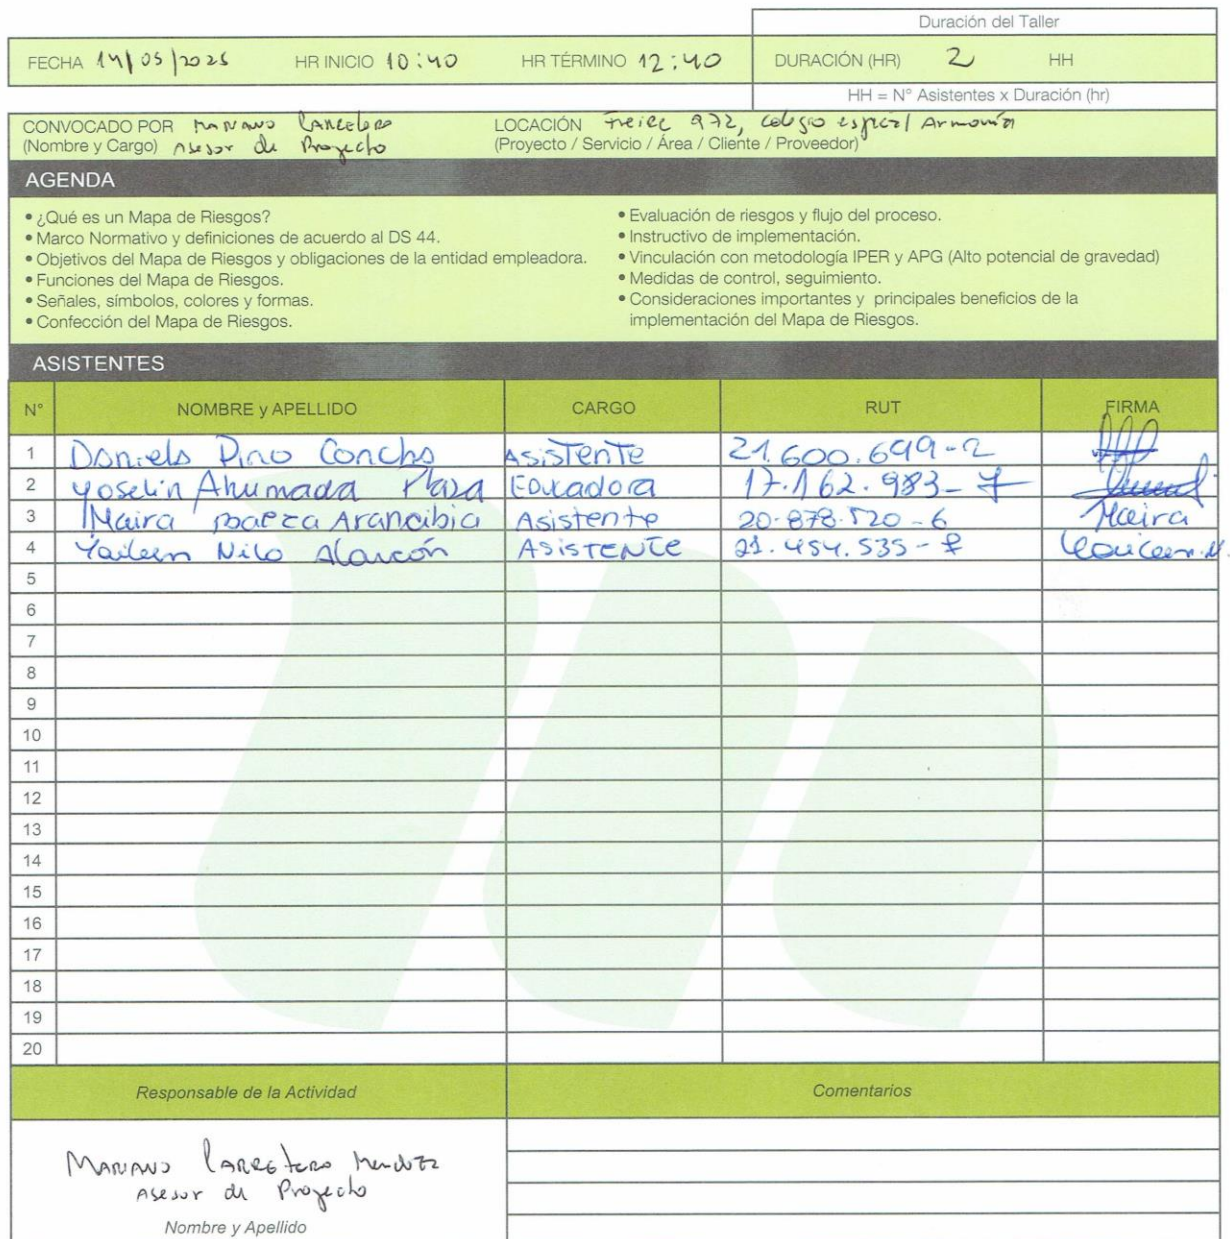 Duración del Taller
FECHA 14/05/2025 HR INICIO 10:40 HR TÉRMINO 12:40 DURACIÓN (HR) 2 HH
HH = N° Asistentes x Duración (hr)
CONVOCADO POR Mariano Carretero LOCACIÓN Freire 972, colegio especial Armonía
(Nombre y Cargo) Asesor de Proyecto (Proyecto / Servicio / Área / Cliente / Proveedor)
AGENDA
• ¿Qué es un Mapa de Riesgos?
• Marco Normativo y definiciones de acuerdo al DS 44.
• Objetivos del Mapa de Riesgos y obligaciones de la entidad empleadora.
• Funciones del Mapa de Riesgos.
• Señales, símbolos, colores y formas.
• Confección del Mapa de Riesgos.
• Evaluación de riesgos y flujo del proceso.
• Instructivo de implementación.
• Vinculación con metodología IPER y APG (Alto potencial de gravedad)
• Medidas de control, seguimiento.
• Consideraciones importantes y principales beneficios de la
implementación del Mapa de Riesgos.
ASISTENTES
N° NOMBRE y APELLIDO CARGO RUT FIRMA
1 Daniela Pino Concha Asistente 21.600.699-2
2 Yoselin Ahumada Plaza Educadora 17.162.983-7
3 Maira Baeza Arancibia Asistente 20.878.520-6 Maira
4 Nilo Alarcón ASISTENTE
5
6
7
8
9
10
11
12
13
14
15
16
17
18
19
20
Responsable de la Actividad Comentarios
Mariano Carretero Mendez
Asesor de Proyecto
Nombre y Apellido